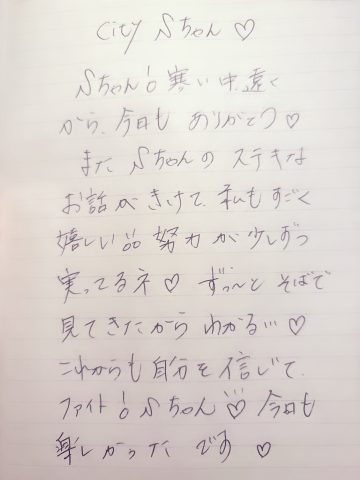 City Sちゃん♡
Sちゃん!寒い中、遠く
から、今日も ありがとう♡
また Sちゃんの ステキな
お話が きけて、私も すごく
嬉しい!! 努力が少しずつ
実ってるネ♡ ずっと そばで
見てきたから わかる…♡
これからも 自分を信じて、
ファイト! Sちゃん♡ 今日も
楽しかった です ♡